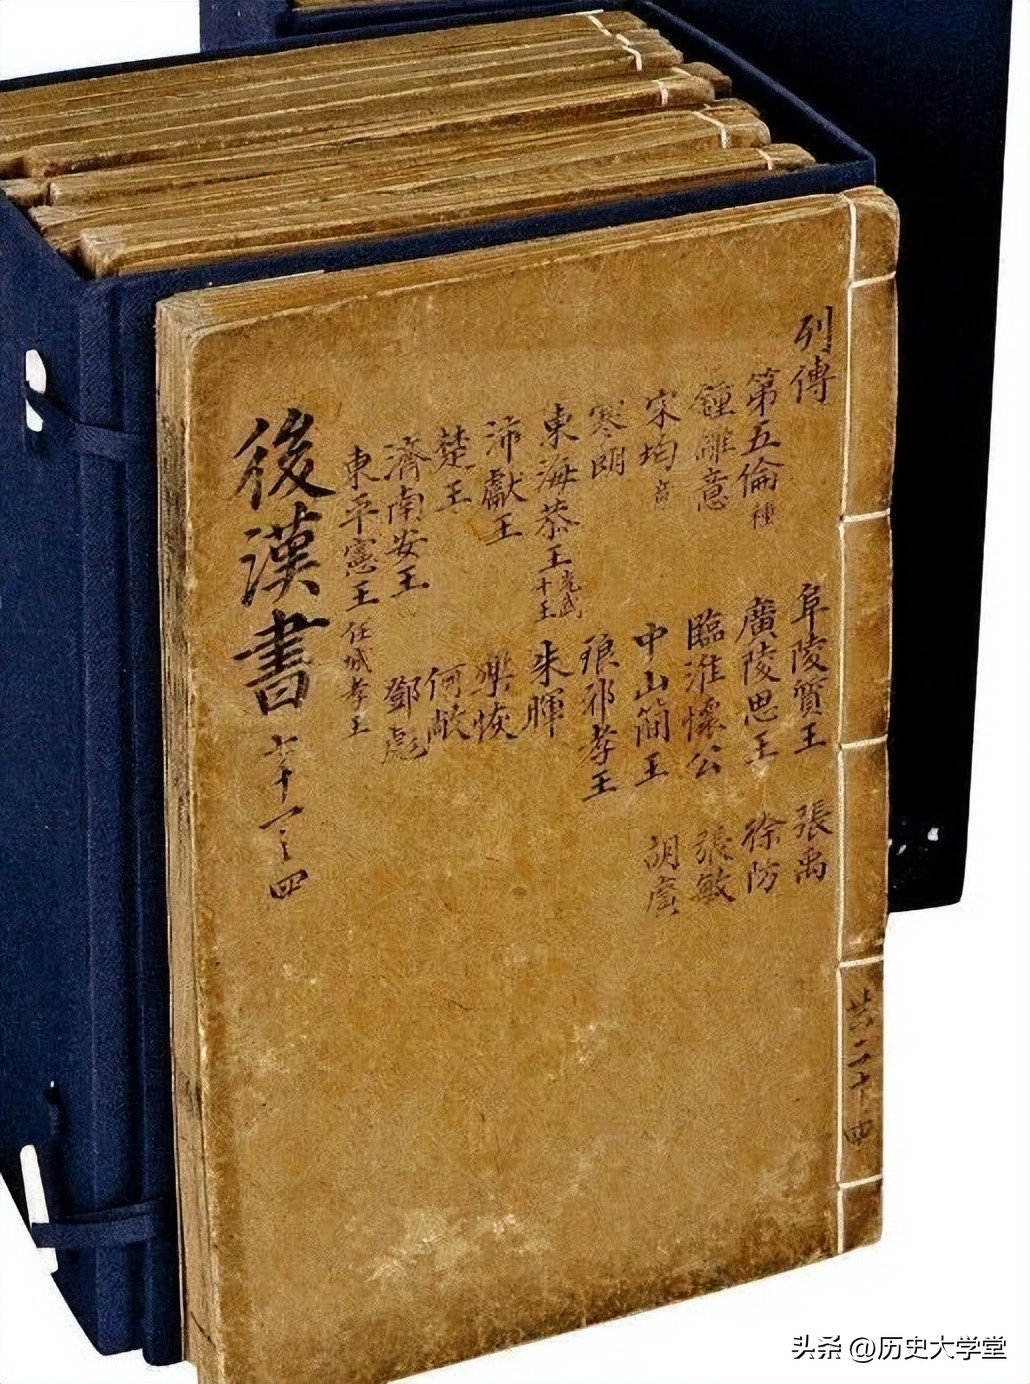 列傳
第五倫 種
鍾離意
宋均 意
寒朗
東海恭王 光武十王
沛獻王
楚王
濟南安王
東平憲王 任城孝王
阜陵質王
廣陵思王
臨淮懷公
中山簡王
琅邪孝王
朱暉
樂恢
何敞
鄧彪
張禹
徐防
張敏
胡廣
後漢書 七十一之四
共二十四
头条 @历史大学堂